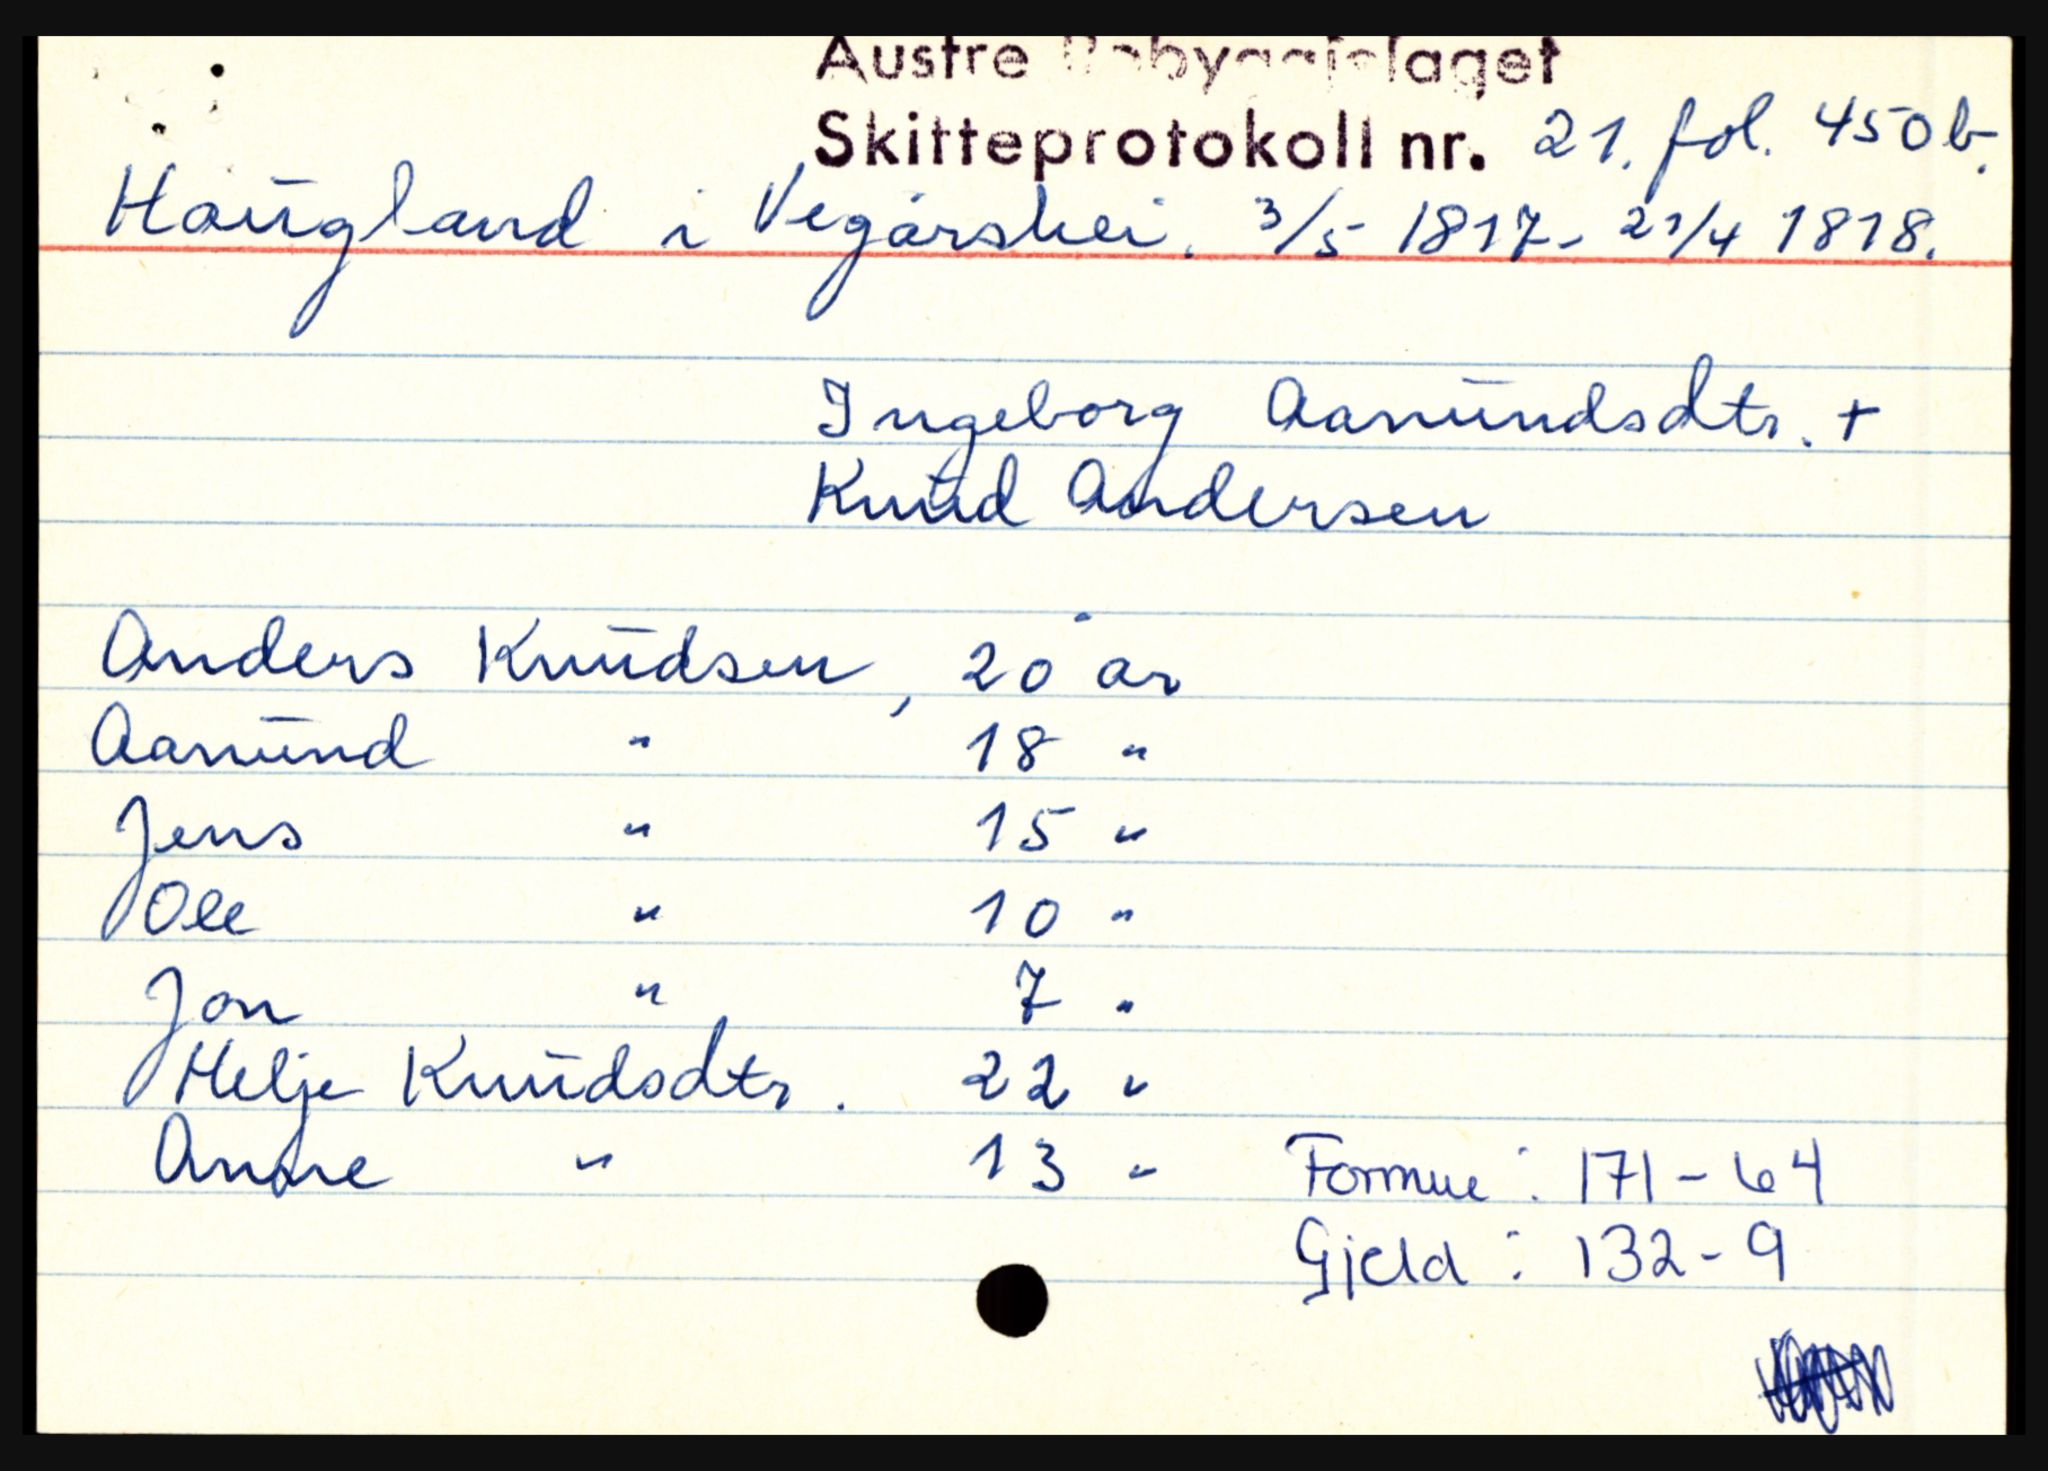 Austre Robyggjelaget
Skifteprotokoll nr. 21. fol. 450 b.
Haugland i Vegårshei. 3/5 1817 - 21/4 1818.
Ingeborg Aanundsdtr. +
Knud Andersen
Anders Knudsen, 20 år
Aanund " 18 "
Jens " 15 "
Ole " 10 "
Jon " 7 "
Helje Knudsdtr. 22 "
Anne " 13 " Formue : 171 - 64
Gjeld : 132 - 9